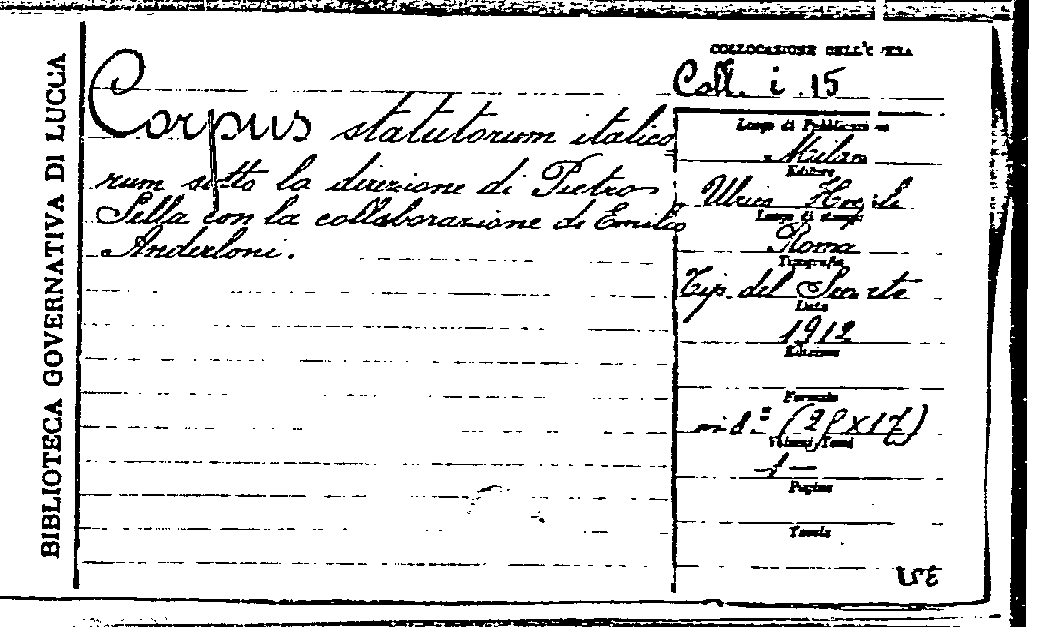 BIBLIOTECA GOVERNATIVA DI LUCCA
Corpus statutorum italico
rum sotto la direzione di Pietro
Sella con la collaborazione di Emilio
Anderloni.
COLLOCAZIONE DELL'OPERA
Coll. i. 15
Luogo di Pubblicazione
Milano
Editore
Ulrico Hoepli
Luogo di stampa
Roma
Tipografia
Tip. del Senato
Data
1912
Edizione
Formato
in 8.º
Volumi/Tomi
1 —
Pagine
Tavole